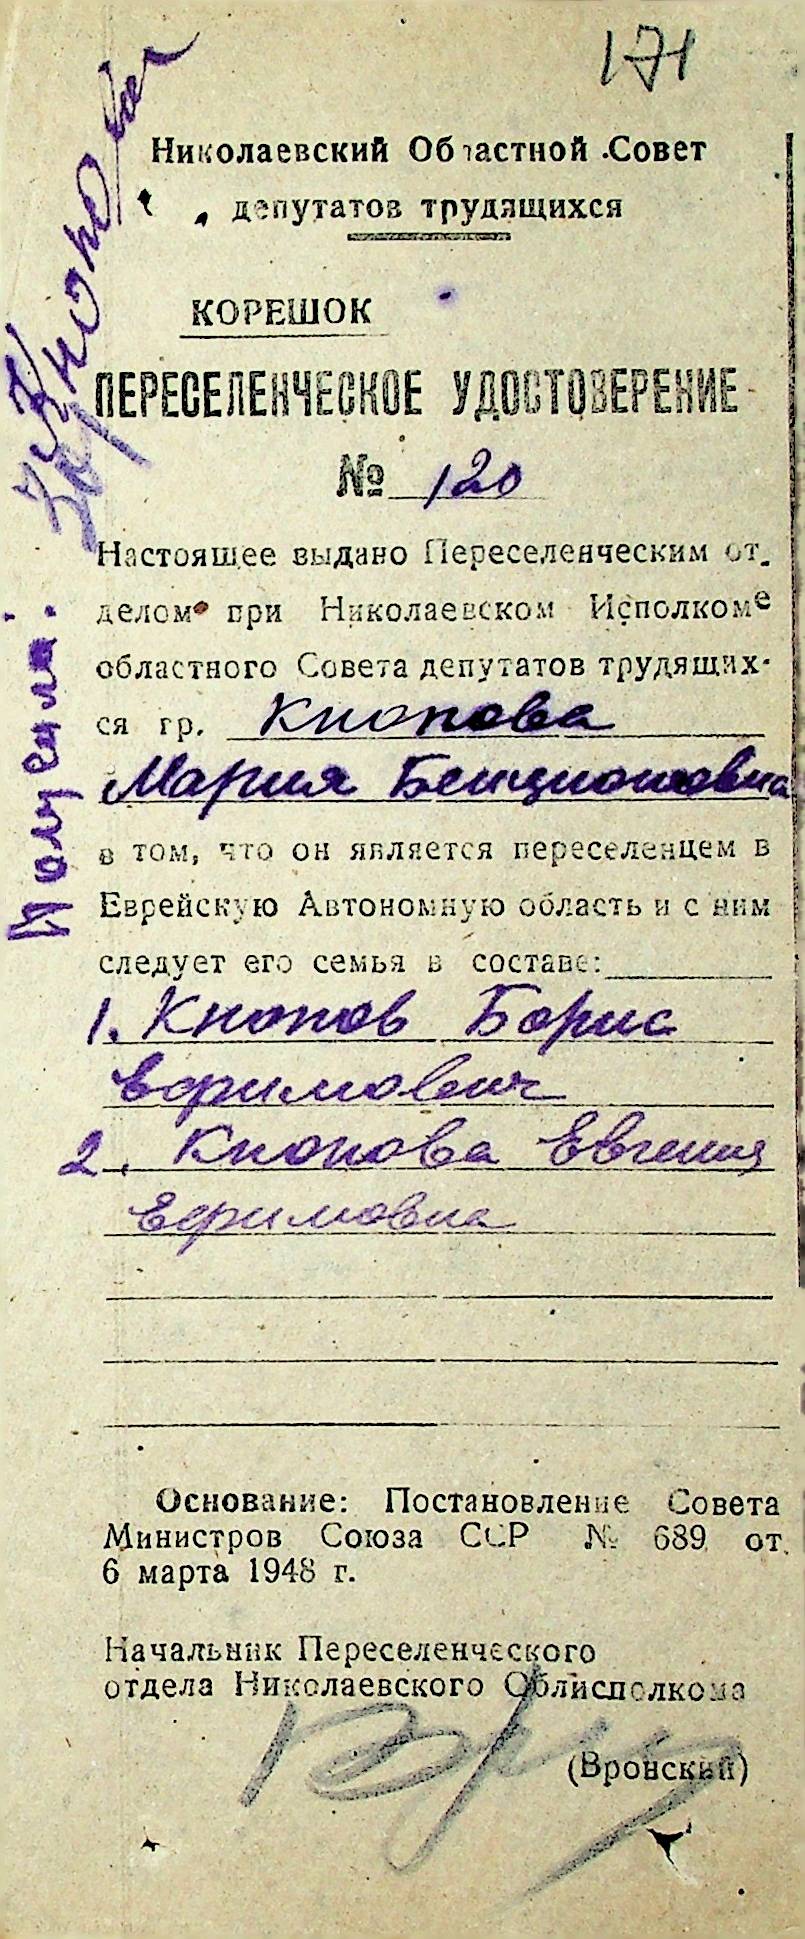 171
Николаевский Областной Совет
депутатов трудящихся
КОРЕШОК
ПЕРЕСЕЛЕНЧЕСКОЕ УДОСТОВЕРЕНИЕ
№ 120
Настоящее выдано Переселенческим от.
делом при Николаевском Исполкоме
областного Совета депутатов трудящих-
ся гр. Кнопова
Мария Бенционовна
в том, что он является переселенцем в
Еврейскую Автономную область и с ним
следует его семья в составе:
1. Кнопов Борис
Ефимович
2. Кнопова Евгения
Ефимовна
Основание: Постановление Совета
Министров Союза ССР № 689 от
6 марта 1948 г.
Начальник Переселенческого
отдела Николаевского Облисполкома
(Вронский)
Получила: